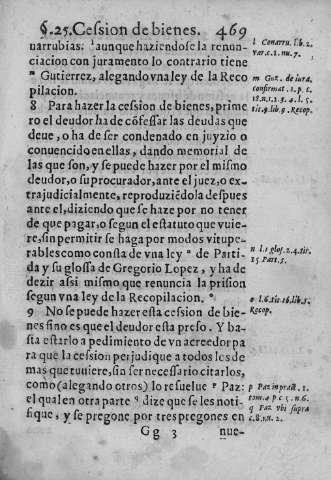 §.25. Cession de bienes. 469
uarrubias. ˡaunque haziendose la renun-
ciacion con juramento lo contrario tiene
ᵐ Gutierrez, alegando vna ley de la Reco
pilacion.
8 Para hazer la cession de bienes, prime
ro el deudor ha de cōfessar las deudas que
deue, o ha de ser condenado en juyzio o
conuencido en ellas, dando memorial de
las que son, y se puede hazer por el mismo
deudor, o su procurador, ante el juez, o ex-
trajudicialmente, reproduziēdola despues
ante el, diziendo que se haze por no tener
de que pagar, o segun el estatuto que vuie-
re, sin permitir se haga por modos vitupe-
rables como consta de vna ley ⁿ de Parti-
da y su glossa de Gregorio Lopez, y ha de
dezir assi mismo que renuncia la prision
segun vna ley de la Recopilacion. º
9 No se puede hazer esta cession de bie-
nes sino es que el deudor esta preso. Y ba-
sta estarlo a pedimiento de vn acreedor pa
ra que la cession perjudique a todos los de
mas que tuuiere, sin ser necessario citarlos,
como (alegando otros) lo resuelue ᵖ Paz:
el qual en otra parte q dize que se les noti-
fique, y se pregone por tres pregones en
Gg 3 nue-
l Couarru. lib. 2.
var. c. 1. nu. 7.
m Gut. de iura.
confirmat. 1. p. c.
18. n. 1. 2. 3. 4. l. 5.
tit. 4. lib. 9. Recop.
n l. 1 glos. 2. 4. tit.
15 Part. 5.
o l. 6. tit. 16. lib. 5.
Recop.
p Paz in pract. 1.
tom. 4 p. c. 5. n. 6.
q Paz vbi supra
c. 8. n. 2.